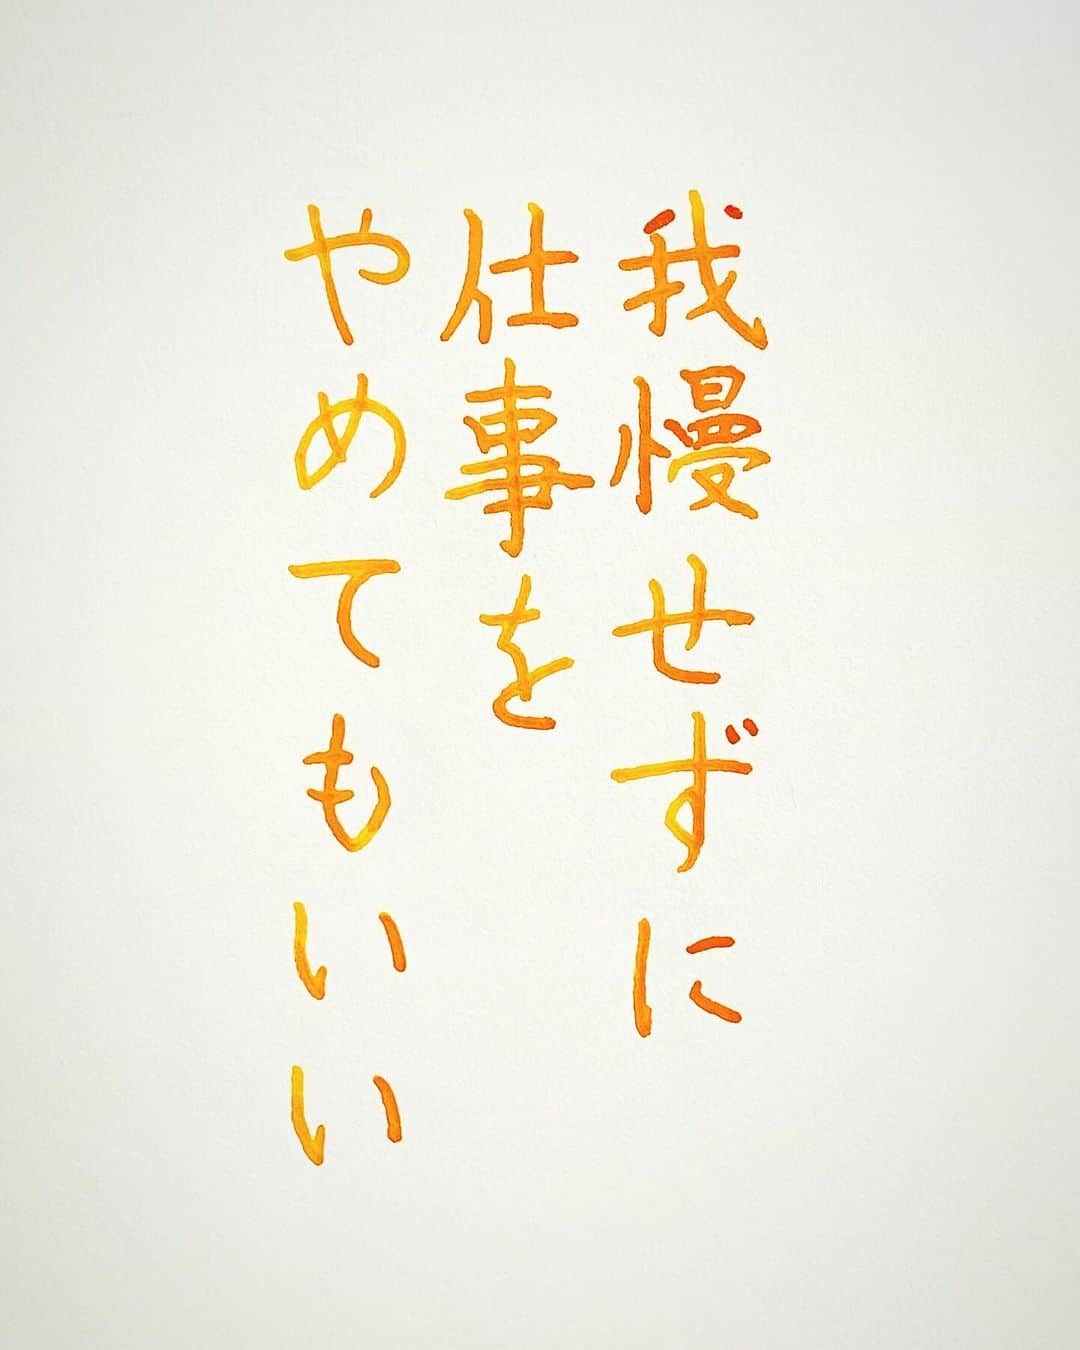 我慢せずに
仕事を
やめてもいい